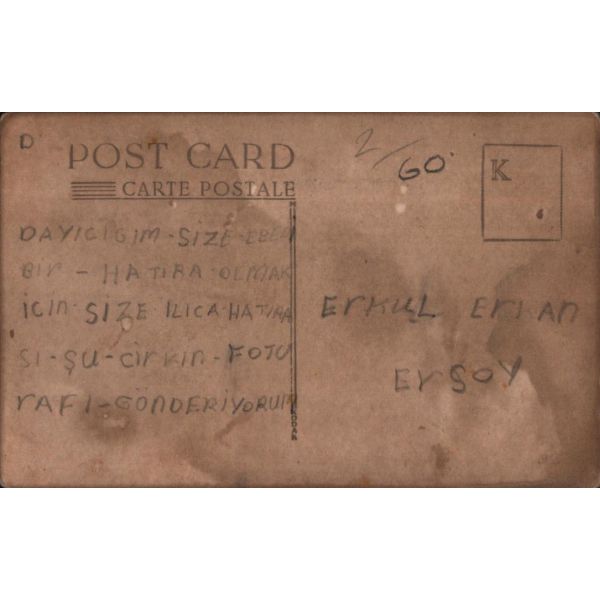 D
POST CARD
CARTE POSTALE
2/60
K
DAYICIGIM-SIZE-EBEDI
BIr-HATIRA OLMAK
İCİn-SİZE ILICA-HATIRA
SI-ŞU-CİrKin-FOTO
rAFI-GÖNDERİYORUM
ErKUL ErKAn
ErSOY
KODAK